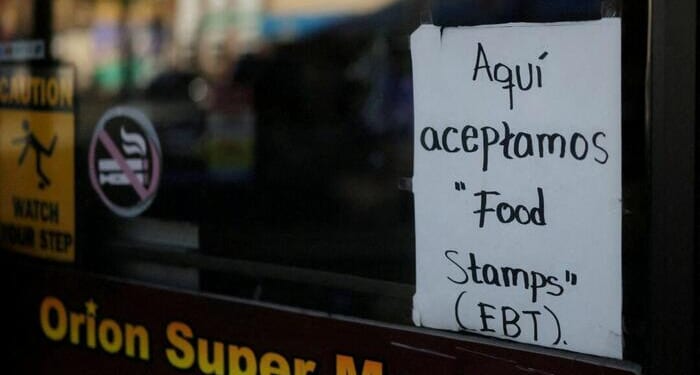 CAUTION
WATCH
YOUR STEP
Aquí
aceptamos
"Food
Stamps"
(EBT).
Orion Super M